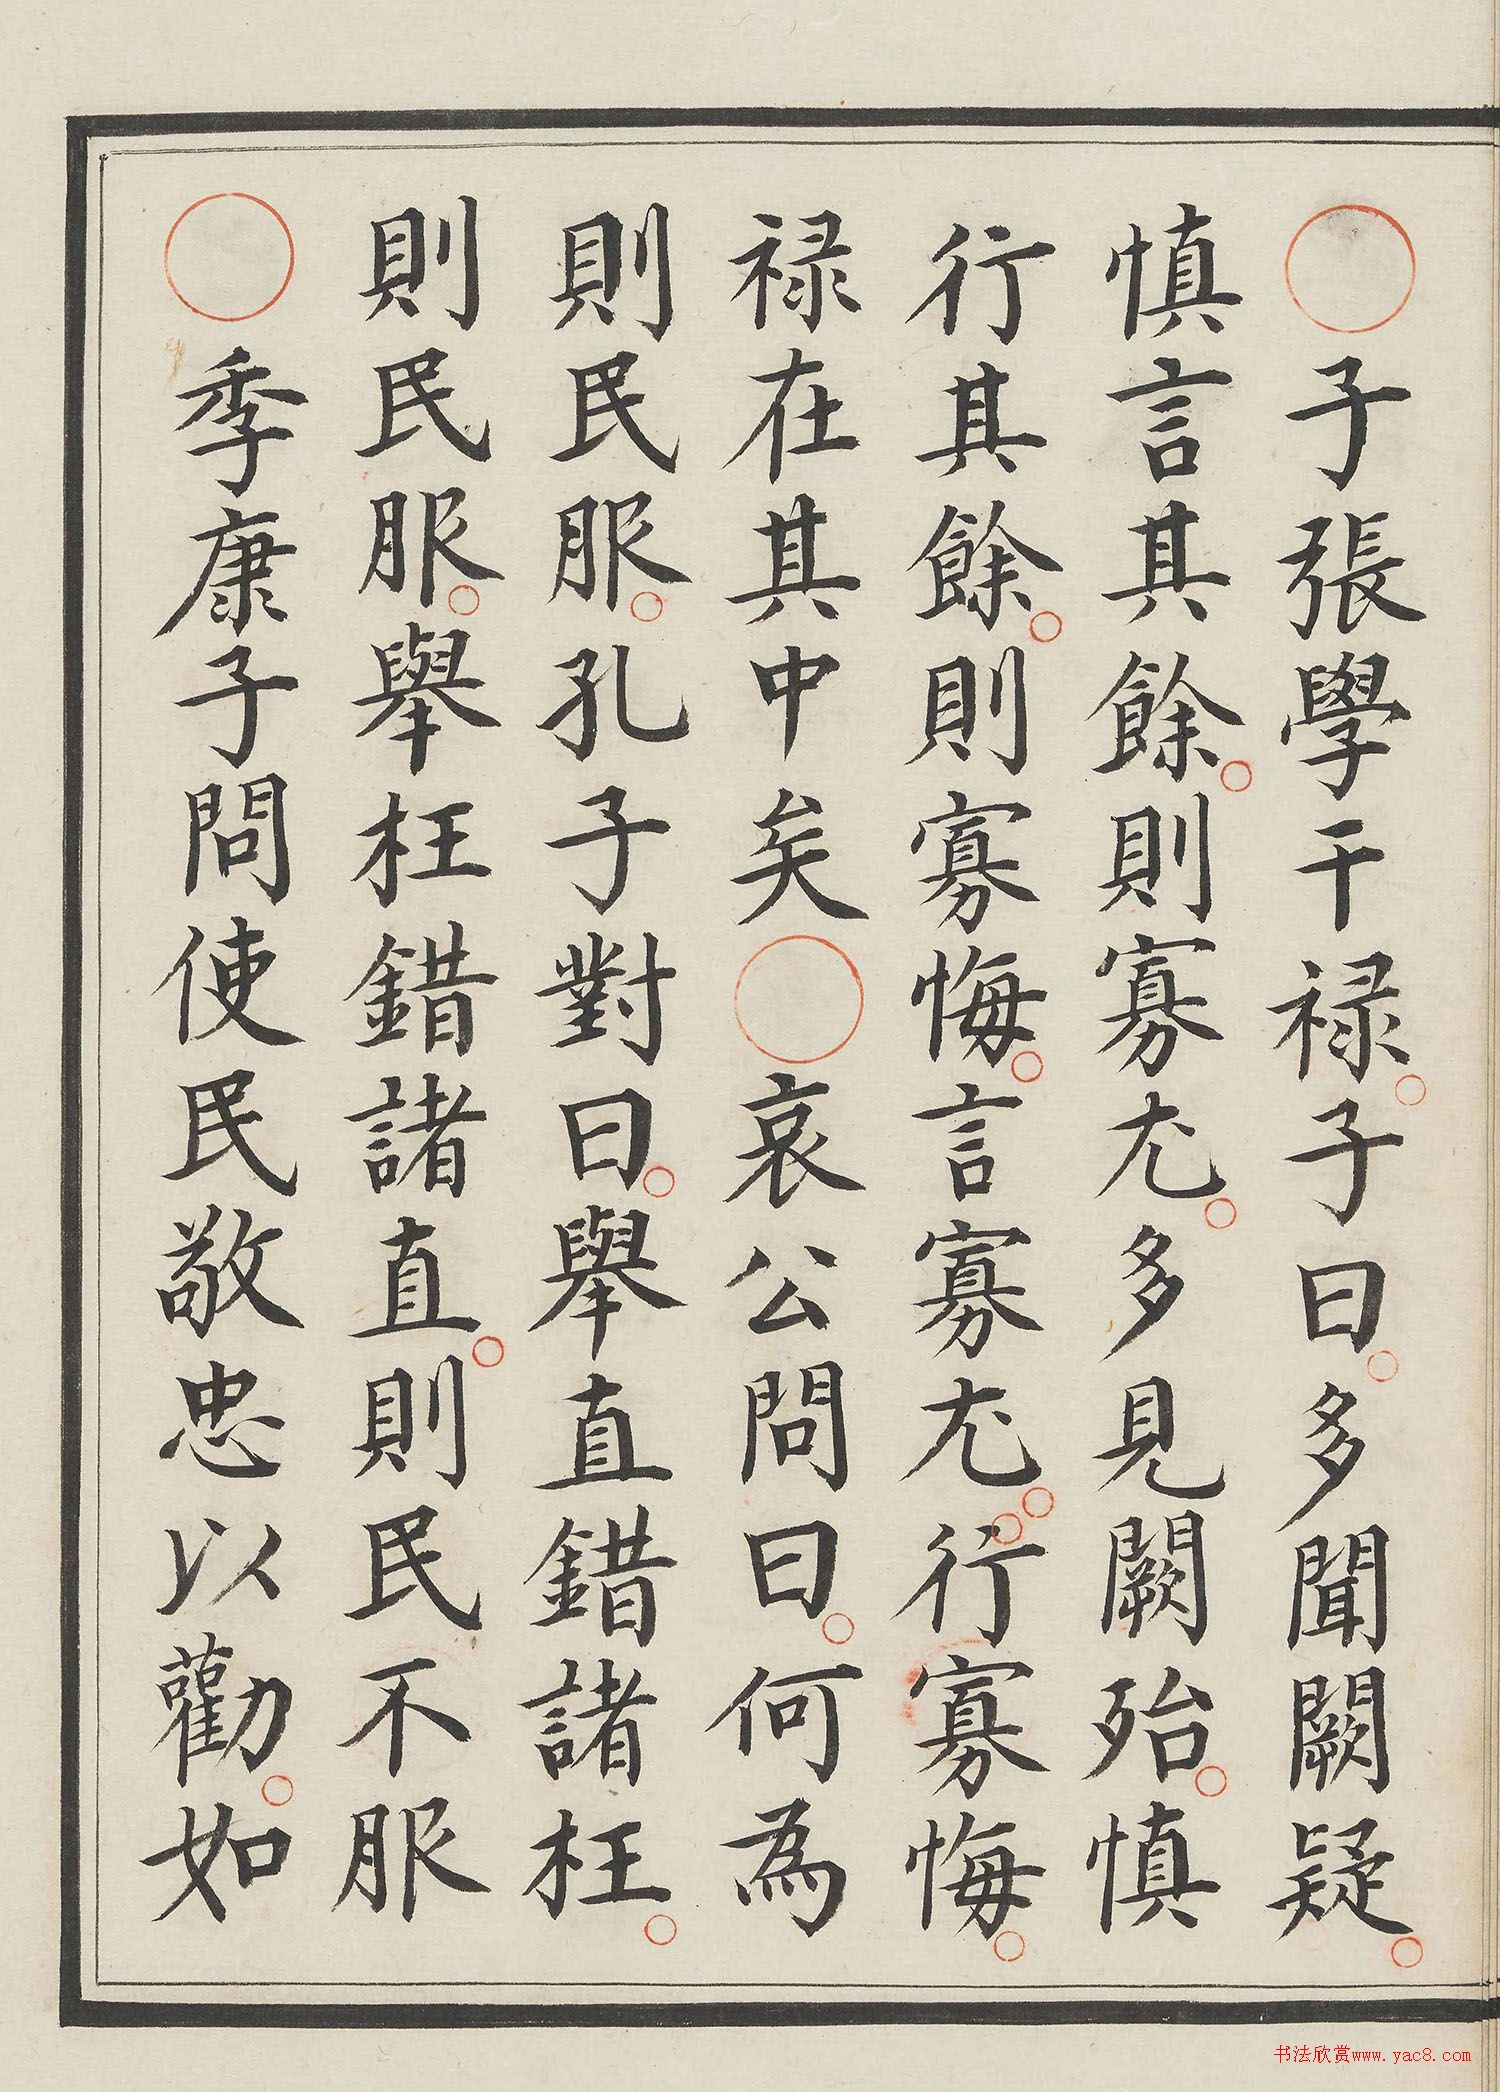 ○子張學干禄。子曰。多聞闕疑。
慎言其餘。則寡尤。多見闕殆。慎
行其餘。則寡悔。言寡尤。行寡悔。
禄在其中矣○哀公問曰。何為
則民服。孔子對曰。舉直錯諸枉。
則民服。舉枉錯諸直。則民不服
○季康子問使民敬忠以勸。如
书法欣赏www.yac8.com